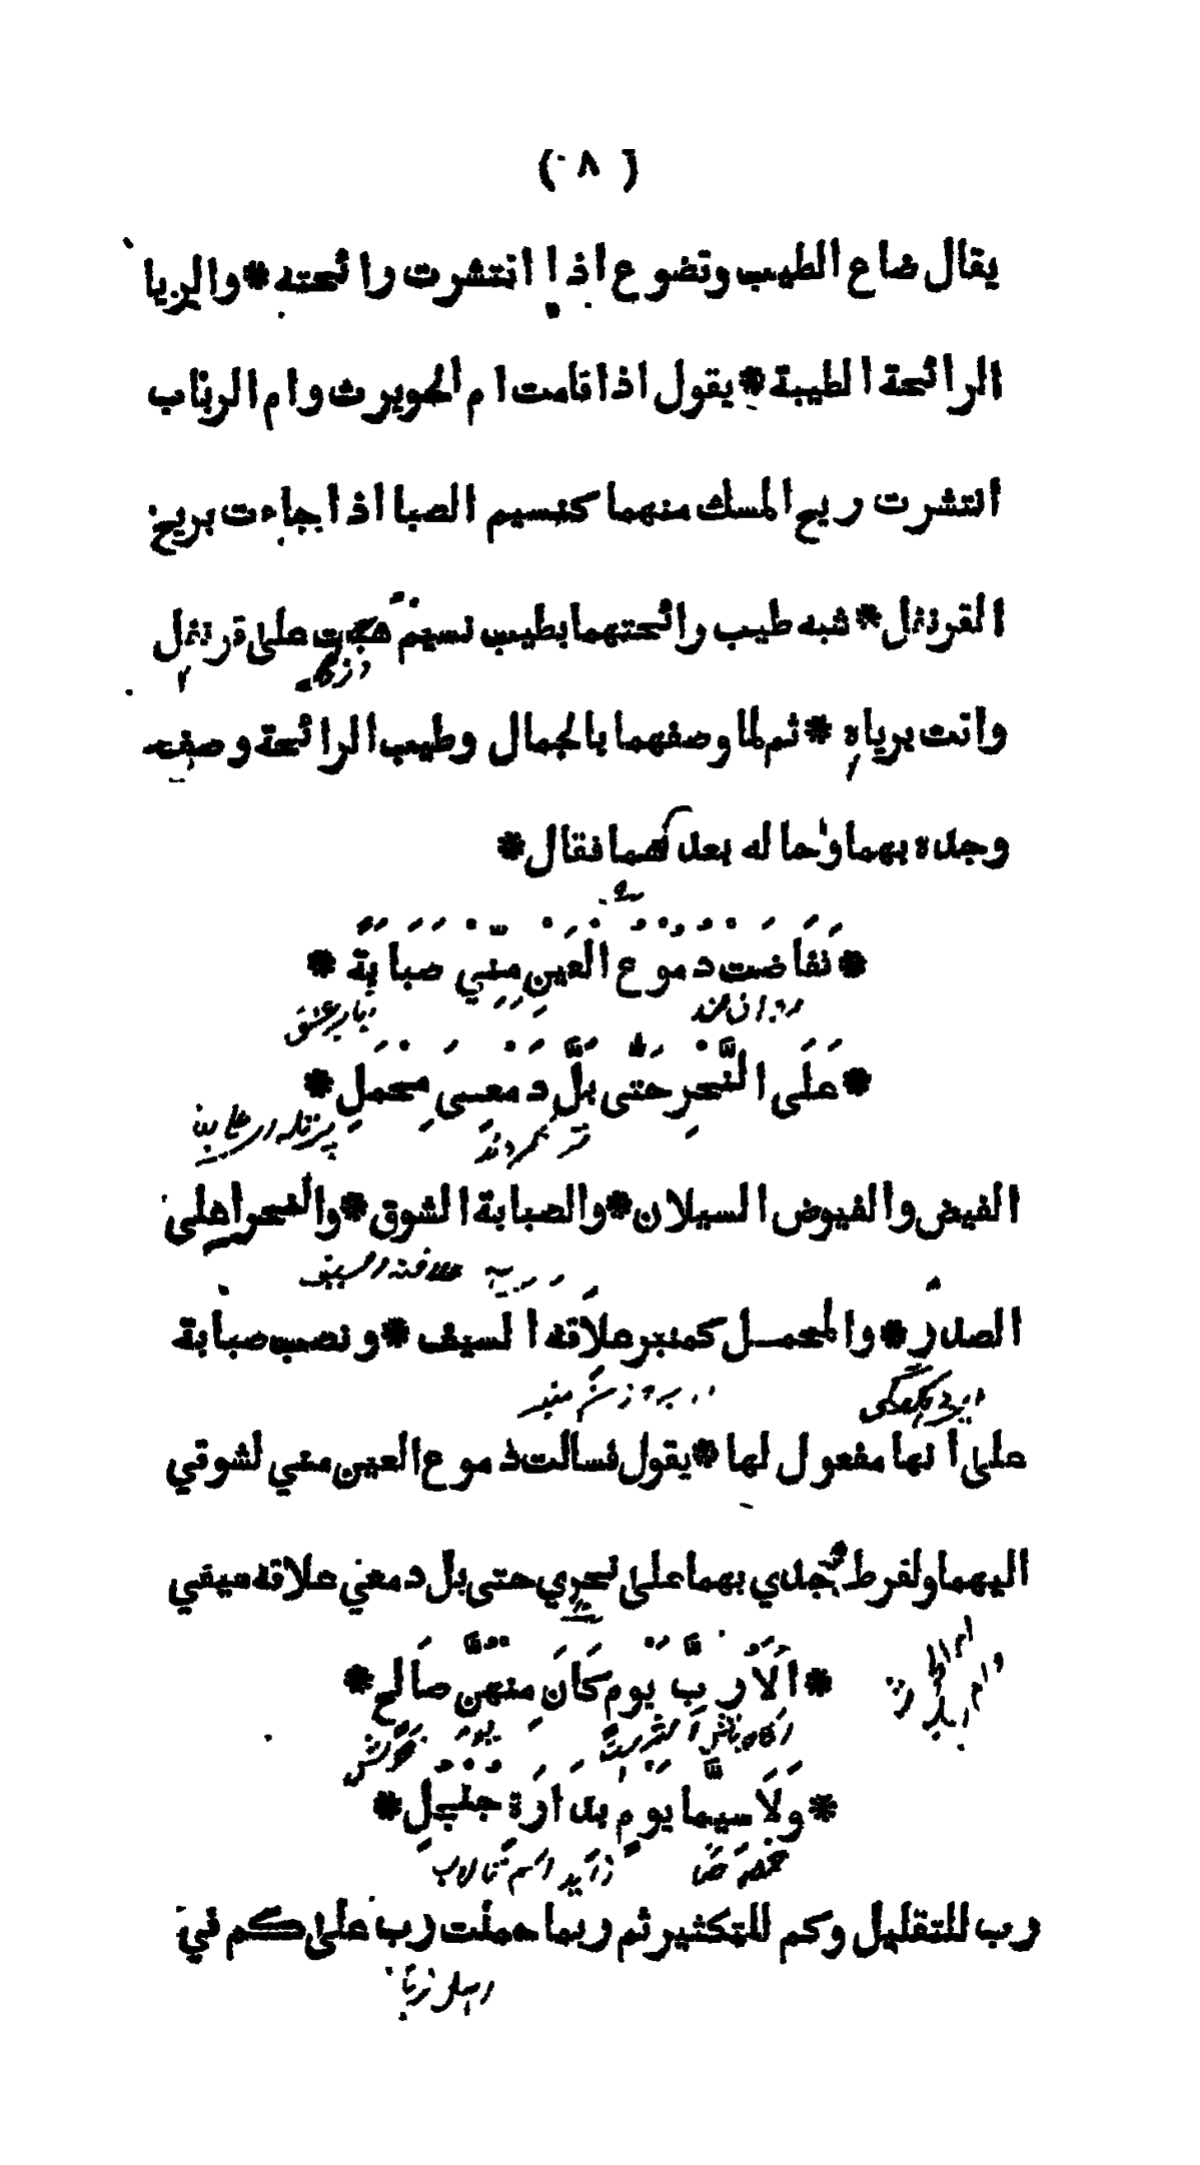 ( ٨ )
يقال ضاع الطيب وتضوع اذا انتشرت رائحته * والريا
الرائحة الطيبة * يقول اذا قامت ام الحويرث وام الرباب
انتشرت ريح المسك منهما كنسيم الصبا اذا جاءت بريح
القرنفل * شبه طيب رائحتهما بطيب نسيم هبت على قرنفل
واتت برياه * ثم لما وصفهما بالجمال وطيب الرائحة وصف
وجده بهما وحاله بعدهما فقال *
* فَفَاضَتْ دُمُوْعُ الْعَيْنِ مِنِّيْ صَبَابَةً *
* عَلَى النَّحْرِ حَتّٰى بَلَّ دَمْعِىَ مِحْمَلِ *
الفيض والفيوض السيلان * والصبابة الشوق * والنحر اعلى
الصدر * والمحمل كمنبر علاقة السيف * ونصب صبابة
على انها مفعول لها * يقول فسالت دموع العين مني لشوقي
اليهما ولفرط وجدي بهما على نحري حتى بل دمعي علاقة سيفي
* اَلَا رُبَّ يَوْمٍ كَانَ مِنْهُنَّ صَالِحٍ *
* وَلَا سِيَّمَا يَوْمٍ بِدَارَةِ جُلْجُلِ *
رب للتقليل وكم للتكثير ثم ربما حملت رب على كم في